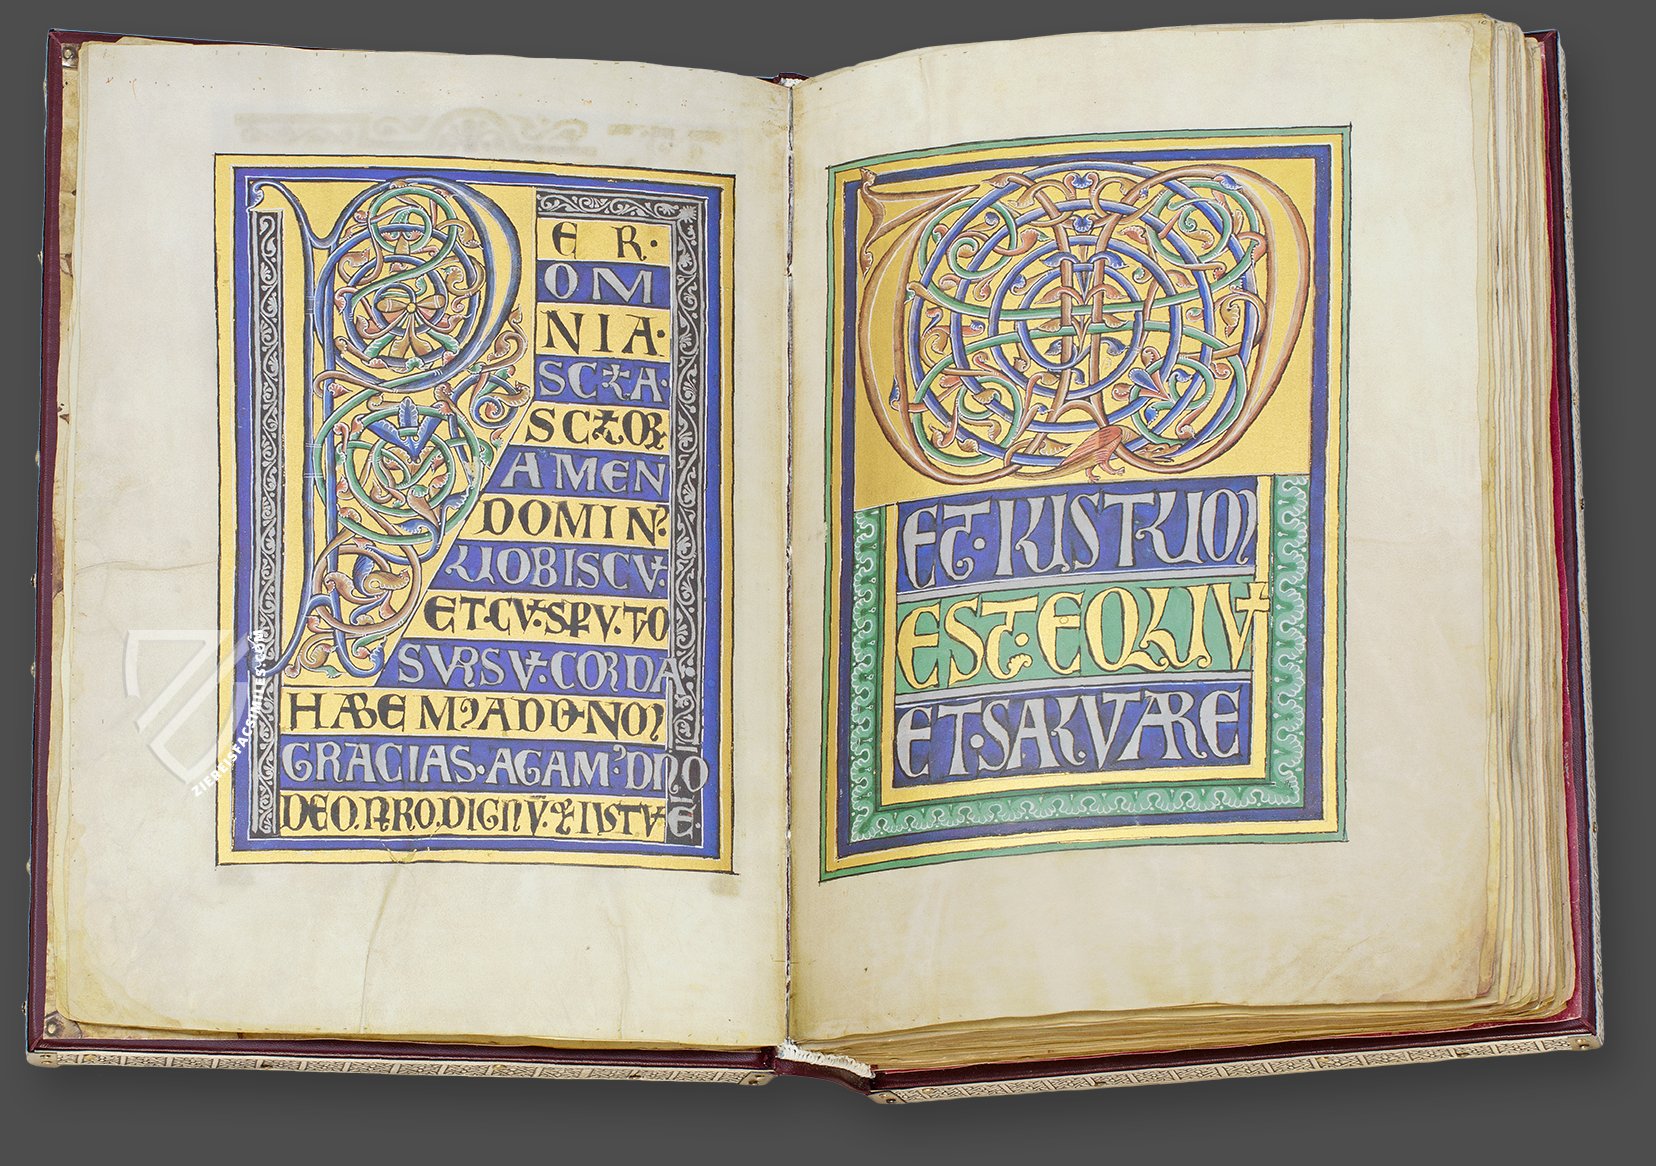 P ER·
OM
NIA·
SCLA·
SCLOR
AMEN
DOMIN?
UOBISCU·
ET·CV·SPU·TO
SURSU·CORDA
HABEM? AD DNOM
GRACIAS·AGAM?DNO
DEO·NRO·DIGNU·& IUSTU E·
UD
ET·IUSTUM
EST·EQUU
ET·SALUTARE
ZIEREISFACSIMILES.COM